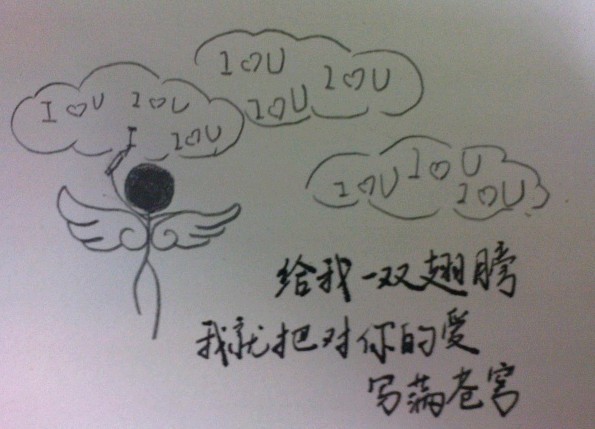 I ♡ U
I ♡ U
I ♡ U
I
I ♡ U
I ♡ U
I ♡ U
I ♡ U
I ♡ U
I ♡ U
给我一双翅膀
我就把对你的爱
写满苍穹